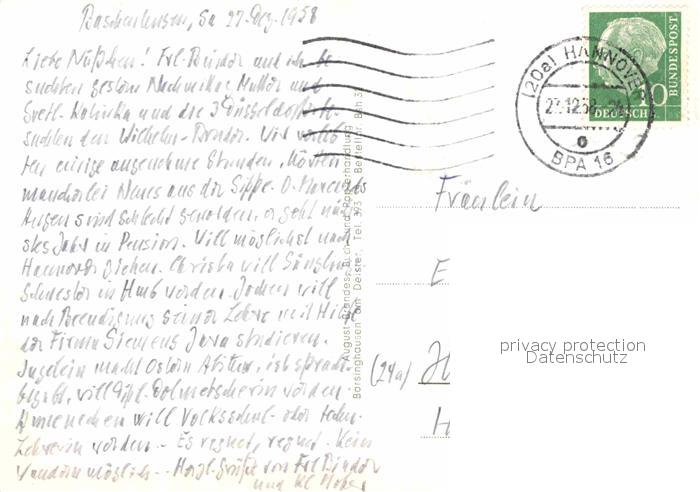 Sa 27. Dez. 1958
Liebe Nüßchen! Frl. Bindor und ich be
suchten gestern Nachmittag Mutter und
und die 3 Düsseldorfer
den Wilhelm
einige angenehme Stunden, hörten
mancherlei Neues aus der Sippe. O.
Augen sind schlecht geworden, er geht näch
stes Jahr in Pension. Will möglichst nach
Hannover ziehen. Christa will Säuglings
Schwester in Hmb werden. Jochen will
nach Beendigung seiner Lehre mit Hilfe
der Firma Siemens Jura studieren.
Ingelein macht Ostern Abitur, ist sprach
begabt, will Dipl. Dolmetscherin werden.
will Volksschul- oder techn.
Lehrerin werden. - Es regnet, regnet. Kein
Wandern möglich. - Herzl. Grüße von Frl Bindor
und
August Brandes, Buch- und Papierhandlung
Barsinghausen am Deister, Tel. 393 Bestellnr. Bsh 3
(20a) HANNOVER
27.12.58
BPA 16
DEUTSCHE
BUNDESPOST
10
Fräulein
E
(24a) H
H
privacy protection
Datenschutz